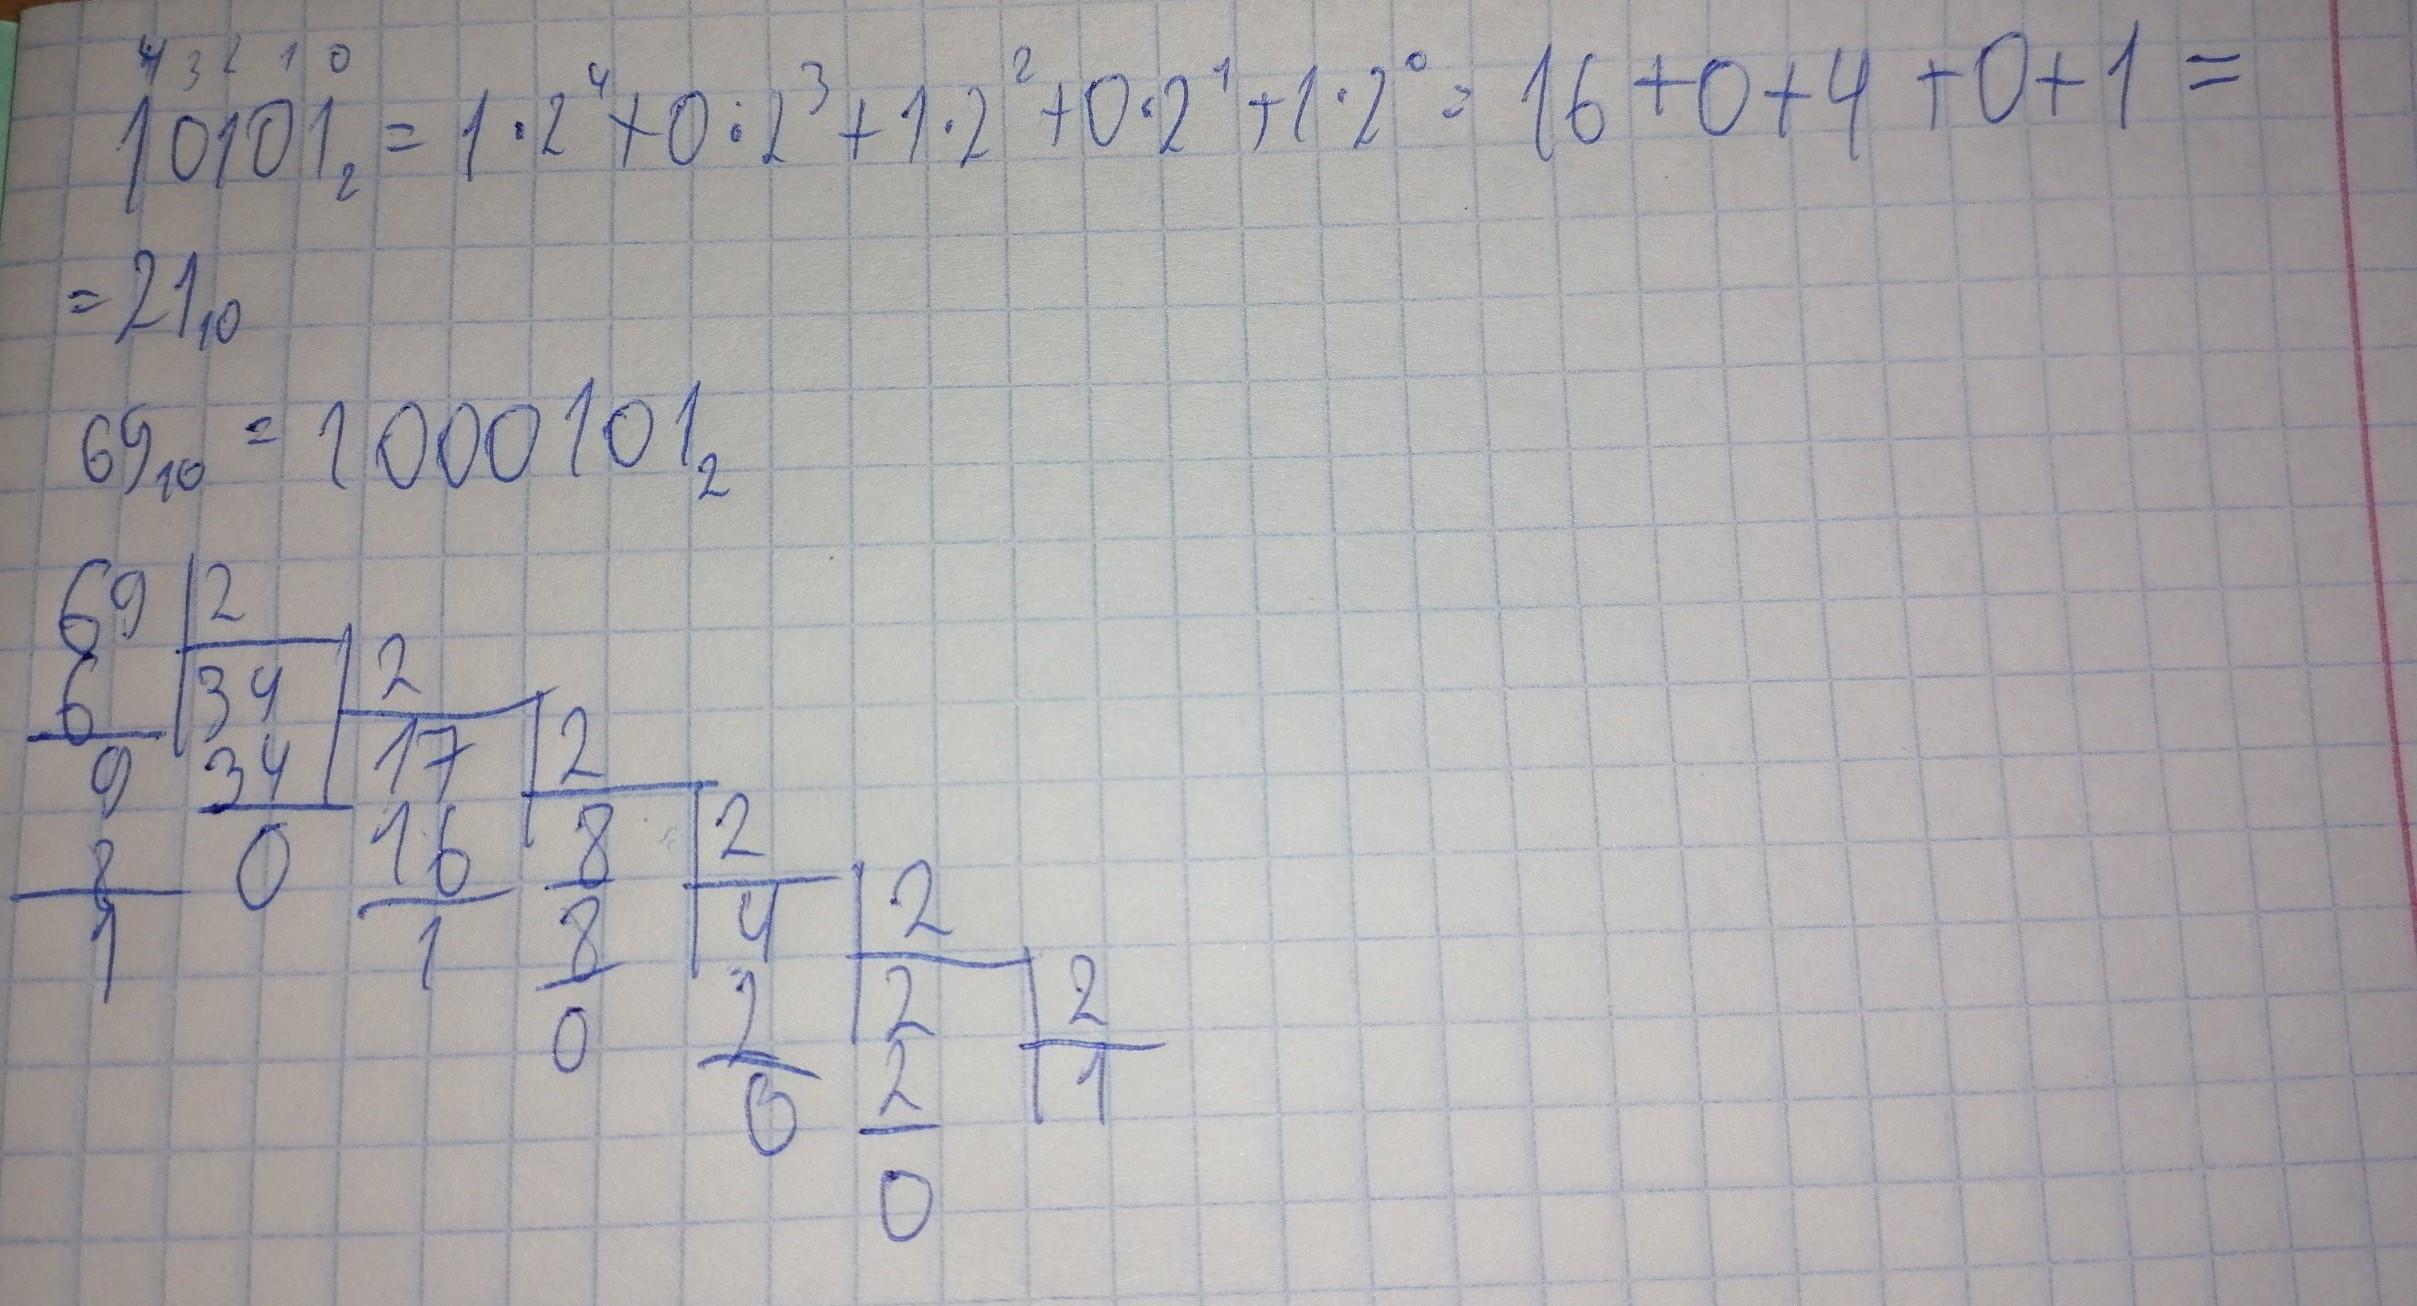 4 3 2 1 0
10101₂ = 1·2⁴+0·2³+1·2²+0·2¹+1·2⁰= 16+0+4+0+1=
=21₁₀
69₁₀ = 1000101₂
69 2
6 34 2
9 34 17 2
8 0 16 8 2
1 1 8 4 2
0 2 2 2
0 2 1
0